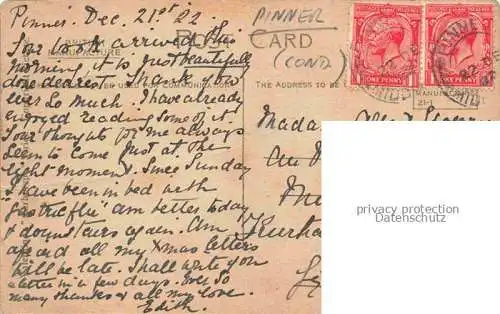 Pinner. Dec. 21st 22
Your book arrived this
morning it is just beautifully
done dearest. Thank you
ever so much. I have already
enjoyed reading some of it.
Your thoughts for me always
seem to come just at the
right moment. Since Sunday
I have been in bed with
"gastric flu" am better today
& downstairs again. Am
afraid all my Xmas letters
will be late. Shall write you
a letter in a few days. Ever so
many thanks & all my love.
Edith.
BRITISH
MANUFACTURE
PINNER
CARD
(COND)
USED FOR COMMUNICATION
THE ADDRESS TO BE
ONE PENNY
ONE PENNY
Madame
privacy protection
Datenschutz